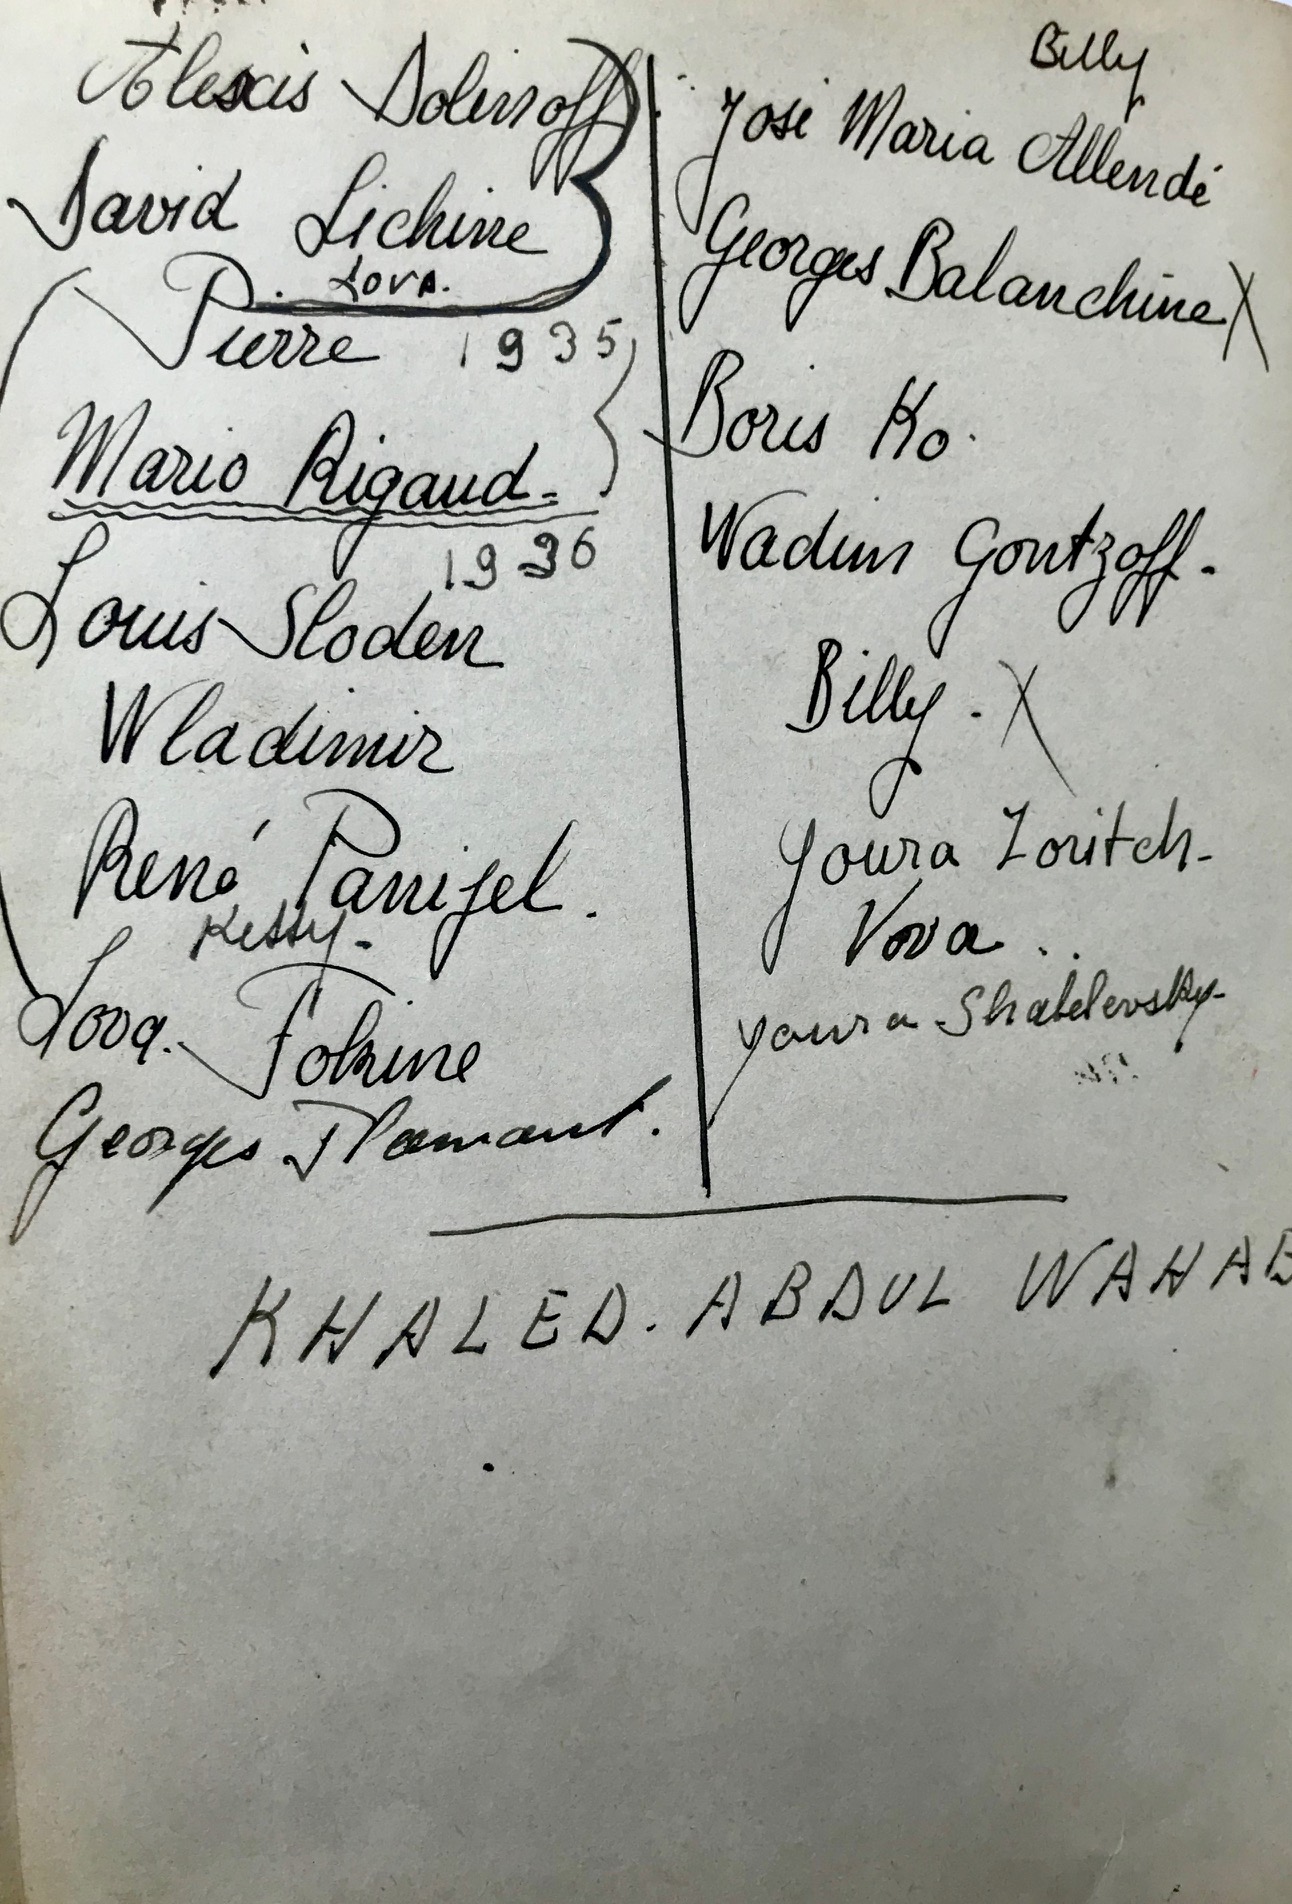 Alexis Dolinoff
David Lichine
Lova.
Pierre 1935
Mario Rigaud
1936
Louis Sloden
Wladimir
René Panijel.
Ketty.
Lova. Fokine
Georges Flamant.
Billy
José Maria Allendé
Georges Balanchine X
Boris Ko.
Wadim Gontzoff.
Billy. X
Youra Zoritch.
Vova..
Youra Shabelevsky.
KHALED. ABDUL WAHAB